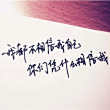 我都不相信我自己
你们凭什么相信我